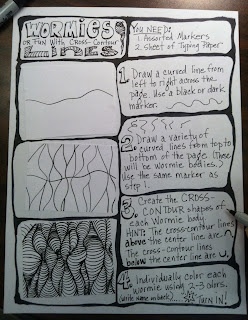 WORMIES,
OR FUN WITH CROSS-CONTOUR
LINES
YOU NEED:
1. Assorted Markers
2. Sheet of Typing Paper
1. Draw a curved line from
left to right across the
page. Use a black or dark
marker.
2. Draw a variety of
curved lines from top to
bottom of the page. (These
will be wormie bodies.)
Use the same marker as
step 1.
3. Create the CROSS-
CONTOUR shapes of
each wormie body.
HINT: The cross-contour lines
above the center line are
The cross-contour lines
below the center line are
4. Individually color each
wormie using 2-3 colors.
(write name on back)... TURN IN!